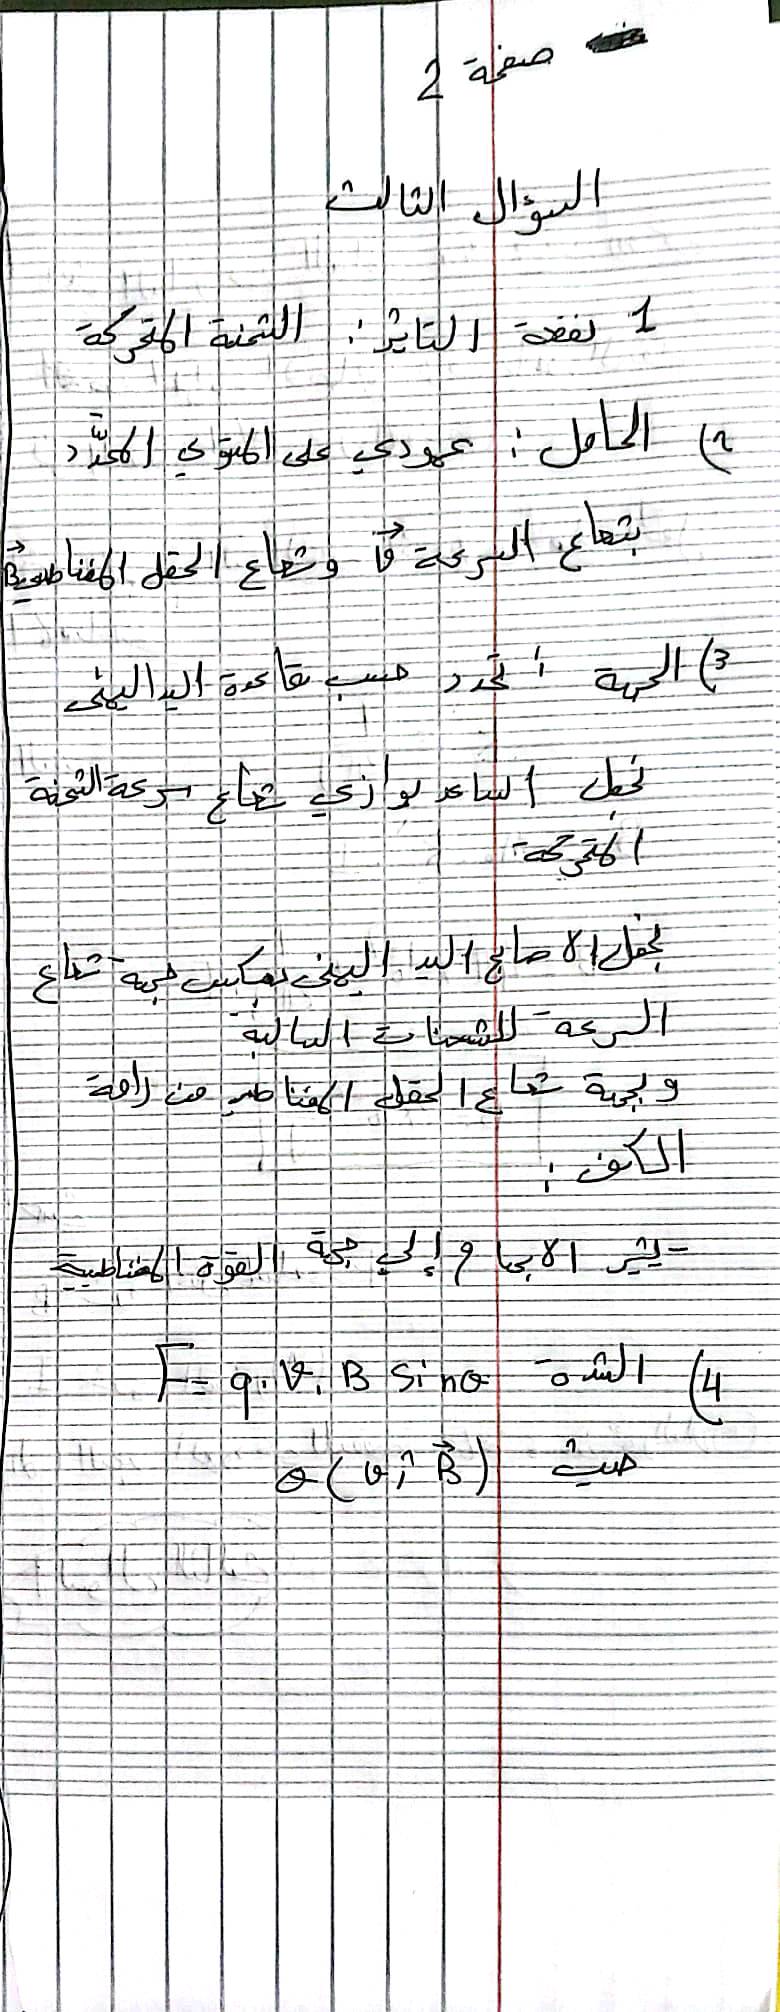 صفحة 2
السؤال الثالث
1 نقطة التاثير: الشحنة المتحركة
2) الحامل: عمودي على المستوي المحدَّد
بشعاع السرعة v⃗ وشعاع الحقل المغناطيسي B⃗
3) الجهة: تحدد حسب قاعدة اليد اليمنى
نجعل الساعد يوازي شعاع سرعة الشحنة
المتحركة
نجعل الاصابع اليد اليمنى بعكس جهة شعاع
السرعة للشحنات السالبة
وجهة شعاع الحقل المغناطيسي من راحة
الكف:
- يشير الابهام إلى جهة القوة المغناطيسية
4) الشدة F = q . v . B sin θ
حيث θ (v , B⃗)